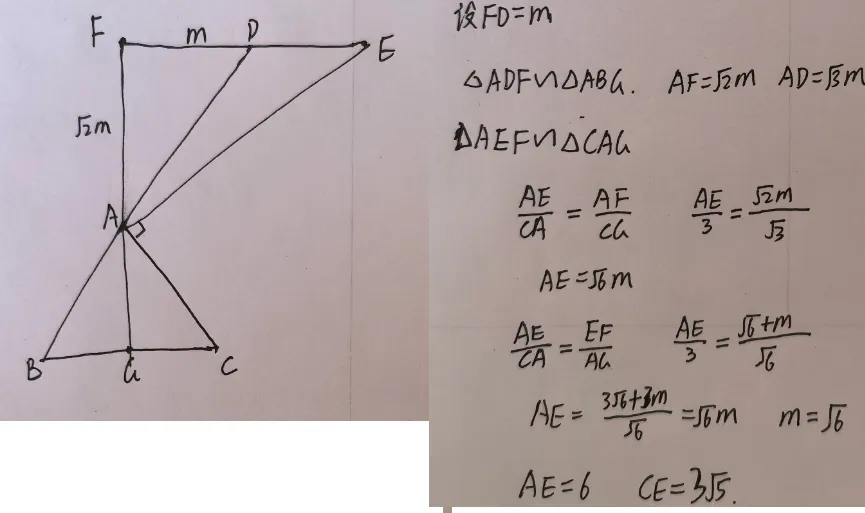 F m D E
√2m
A
B G C
设FD=m
△ADF∽△ABG. AF=√2m AD=√3m
△AEF∽△CAG
AE/CA = AF/CG AE/3 = √2m/√3
AE=√6m
AE/CA = EF/AG AE/3 = √6+m/√6
AE= 3√6+3m/√6 =√6m m=√6
AE=6 CE=3√5.